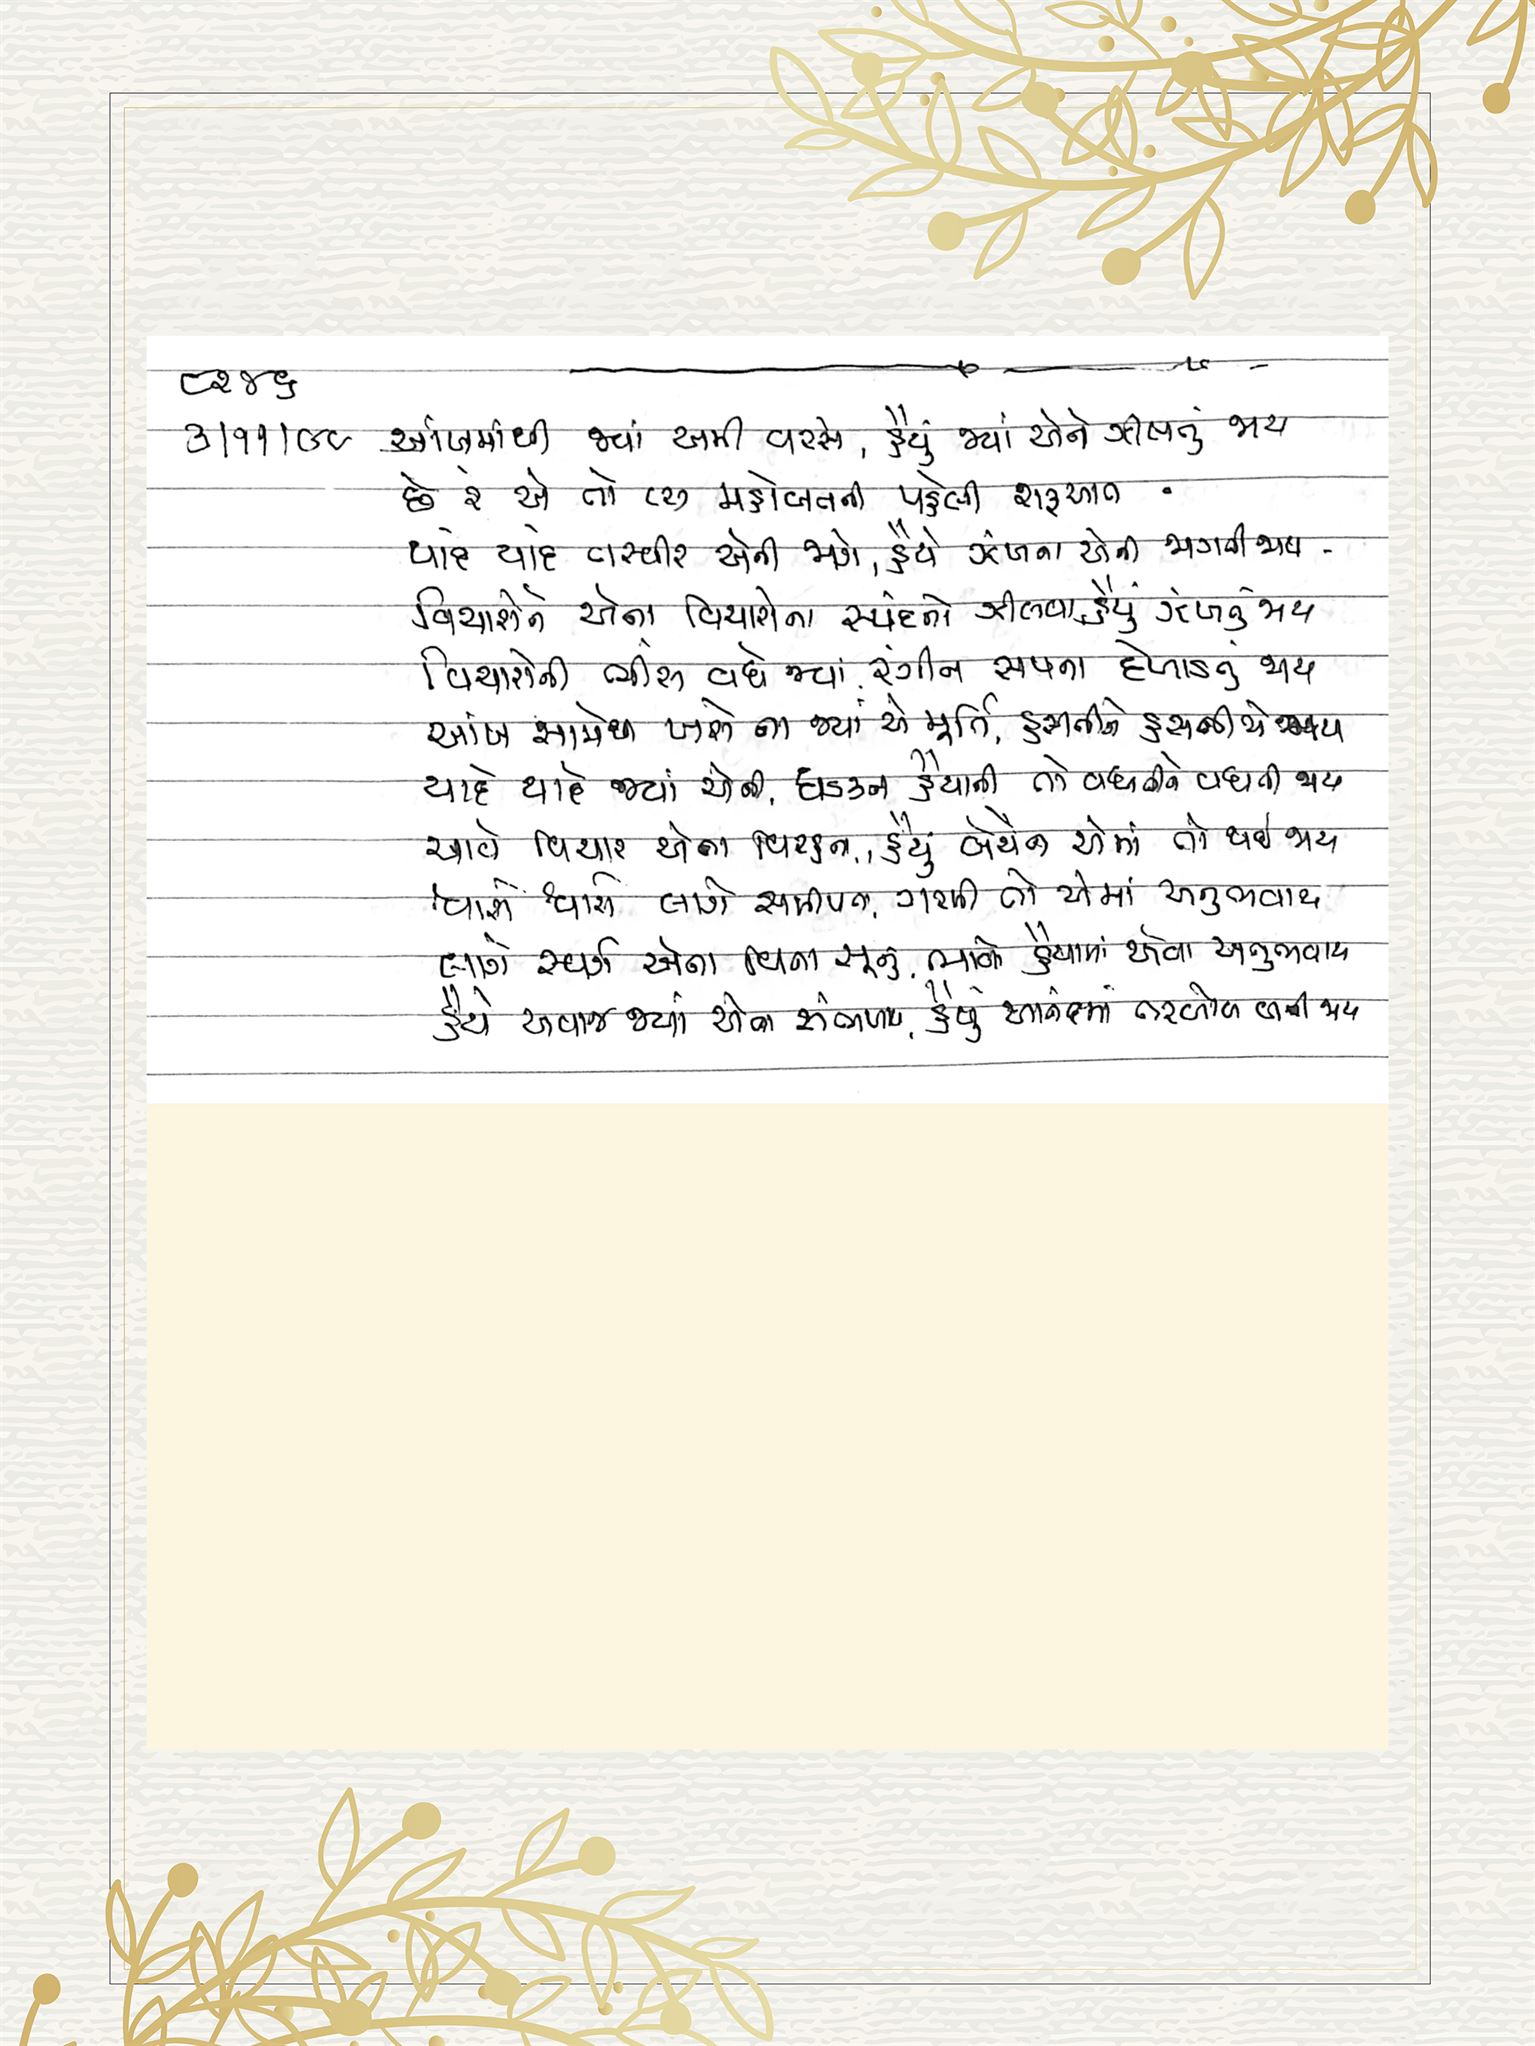 ૮૨૪૬
૩/૧૧/૯૯ આંખમાંથી જ્યાં અમી વરસે, હૈયું જ્યાં એને ઝીલતું જાય
છે રે એ તો મહોબતની પહેલી શરૂઆત
યાદે યાદે તસ્વીર એની જાગે, હૈયે ઝંખના એની જાગતી જાય -
વિચારોને એના વિચારોના સ્પંદનો ઝીલવા, હૈયું ઝંખતું જાય
વિચારોની ભીંસ વધે જ્યાં, રંગીન સપના દેખાડતું જાય
આંખ સામેથી ખસે ના જ્યાં એ મૂર્તિ, હસતીને હસતી એ જાય
યાદે યાદે જ્યાં એની, ધડકન હૈયાની તો વધતીને વધતી જાય
આવે વિચાર એના વિરહના, હૈયું બેચેન એમાં તો થઈ જાય
શ્વાસે શ્વાસે લાગે સમીપતા, ગરમી તો એમાં અનુભવાય
લાગે સ્વર્ગ એના વિના સૂનું, હૈયામાં એવા અનુભવાય
હૈયે અવાજ જ્યાં એના સંભળાય, હૈયું આનંદમાં તરબોળ બની જાય